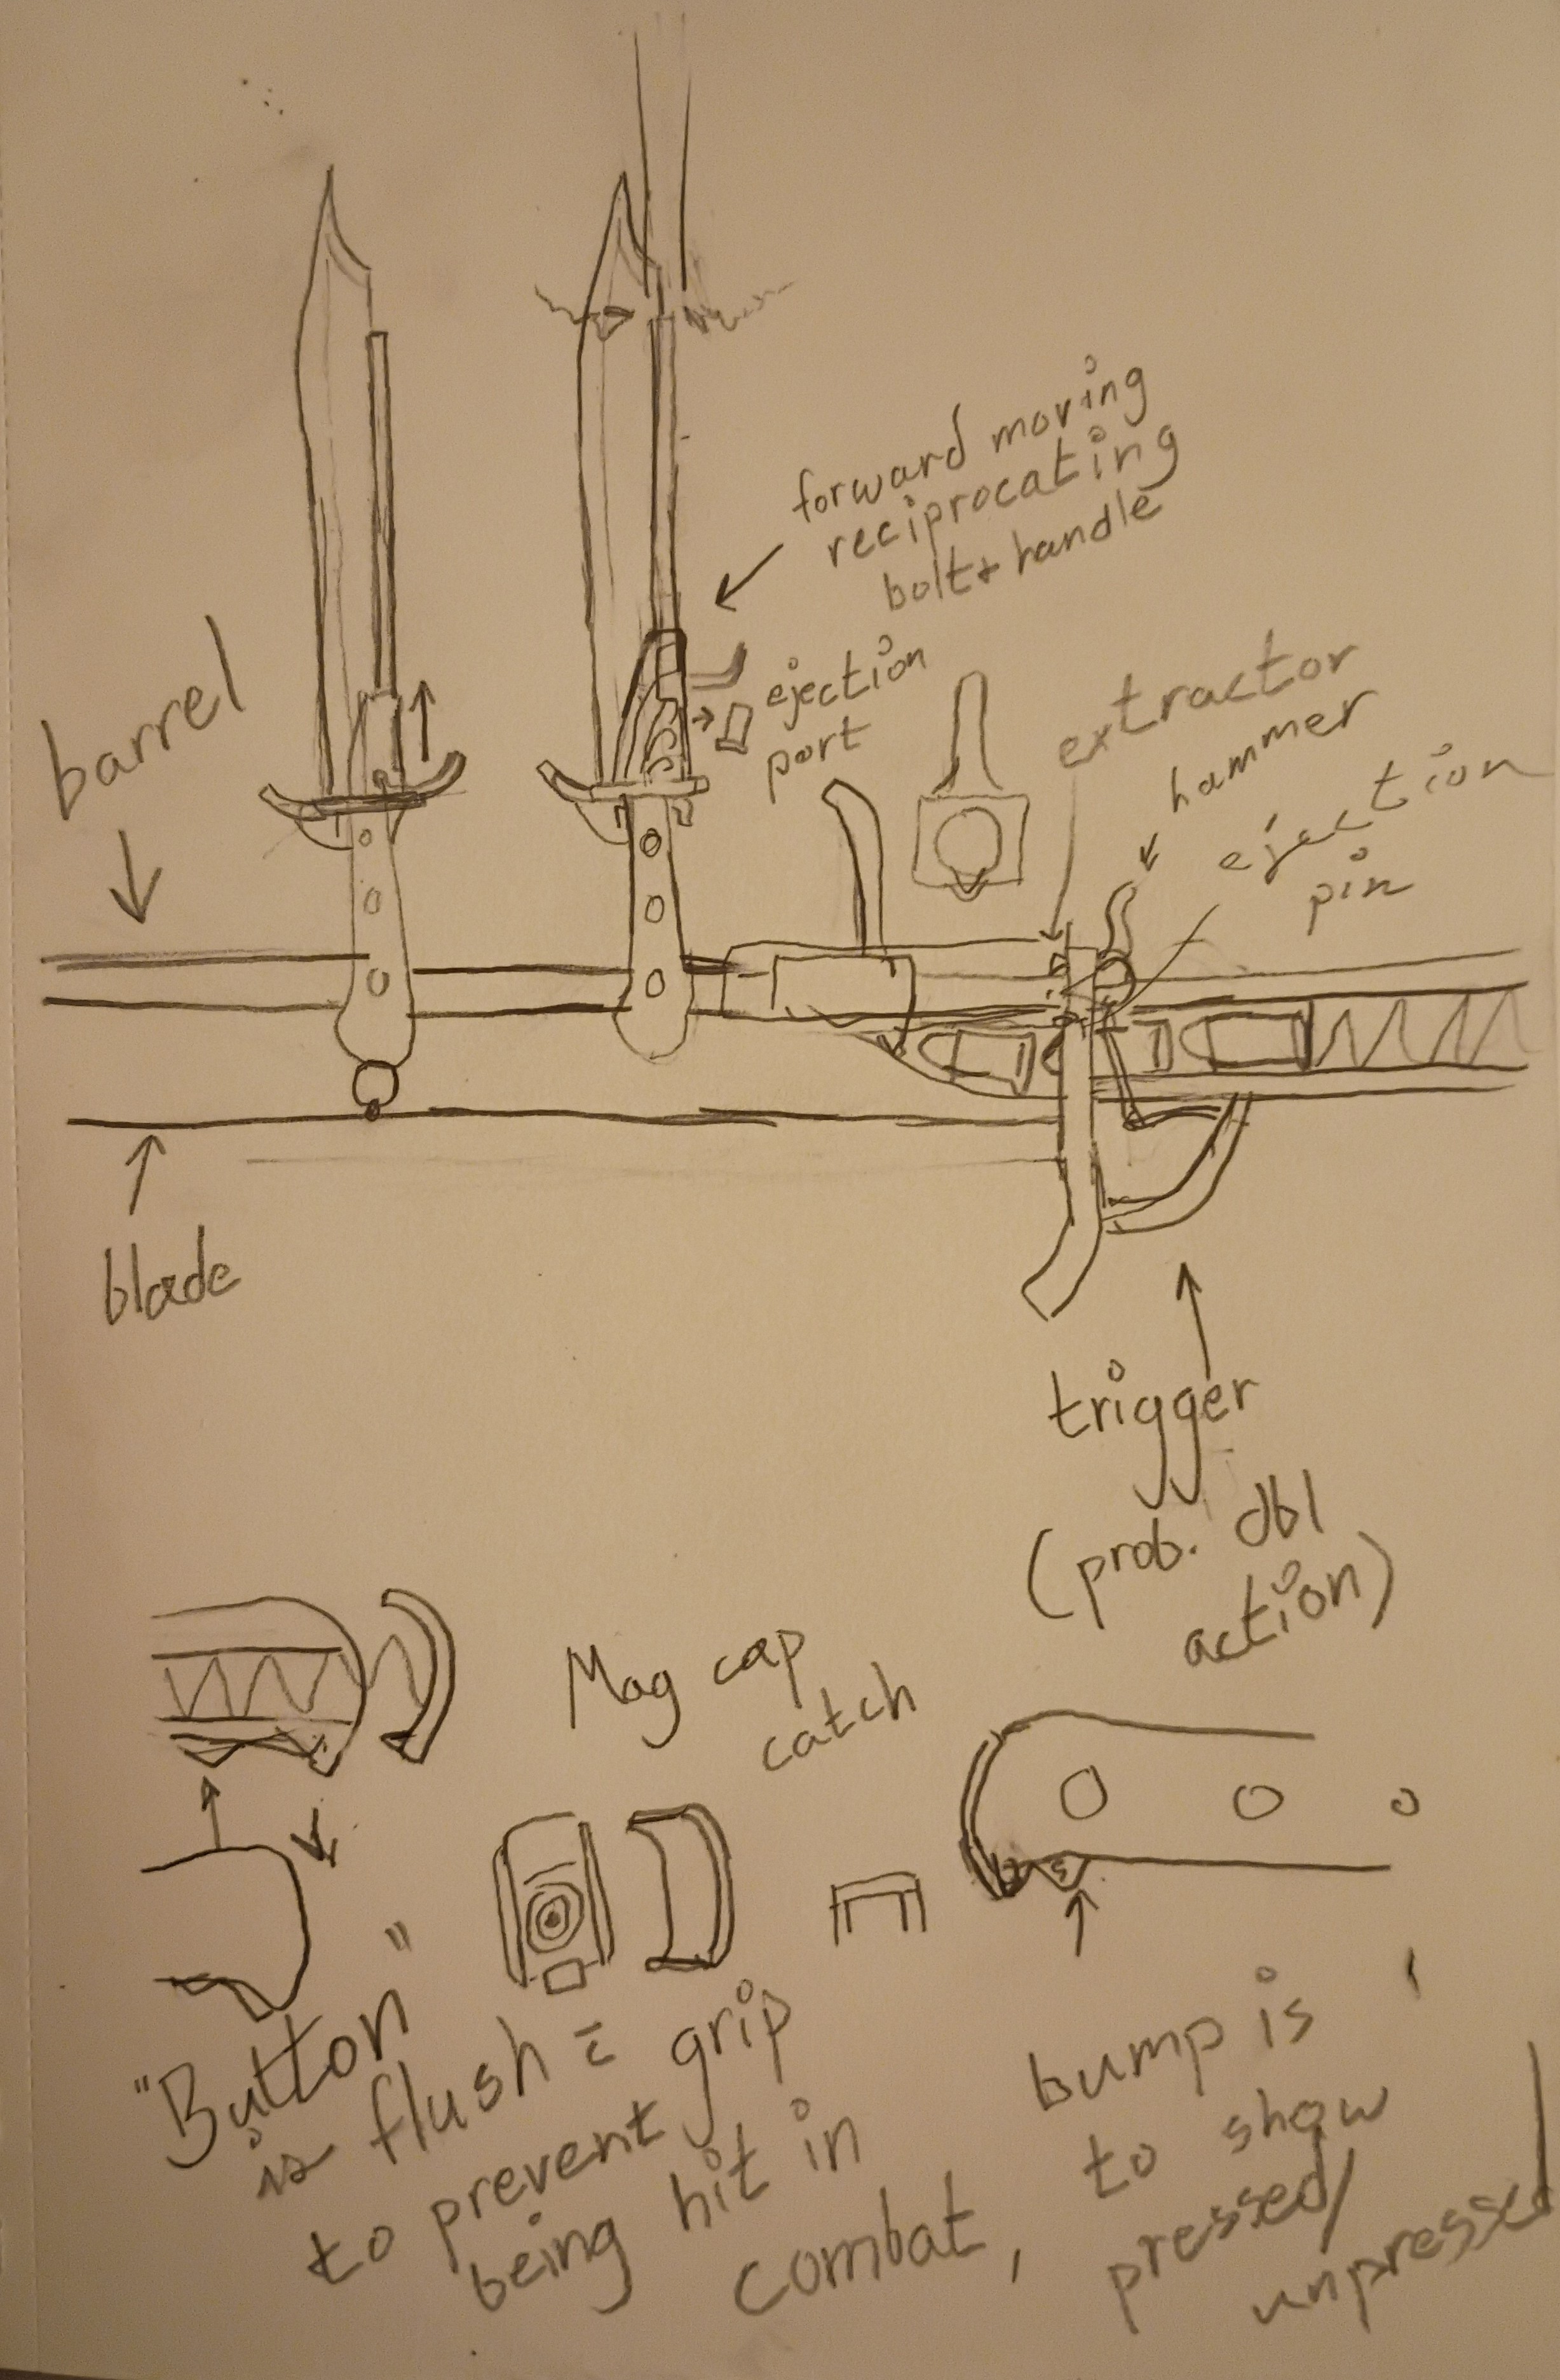 forward moving
reciprocating
bolt + handle
barrel
ejection
port
extractor
hammer
ejection
pin
blade
trigger
(prob. dbl
action)
Mag cap
catch
"Button"
is flush = grip
to prevent
being hit in
combat,
bump is
to show
pressed/
unpressed